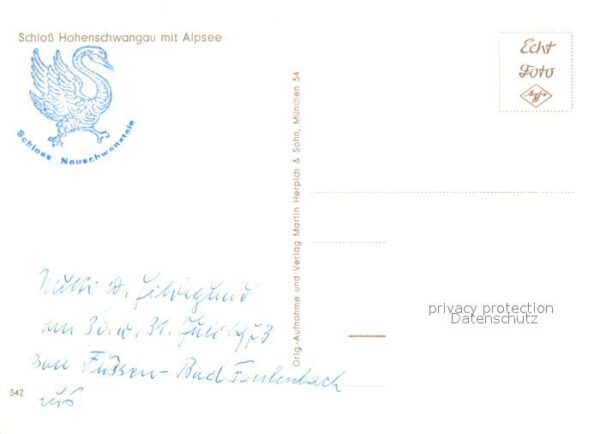 Schloß Hohenschwangau mit Alpsee
Schloss Neuschwanstein
Echt
Foto
Agfa
Orig.-Aufnahme und Verlag Martin Herpich & Sohn, München 54
Mutti u. Hildegund
am 30. u. 31. Juli 1973
von Füssen - Bad Faulenbach
aus
privacy protection
Datenschutz
342